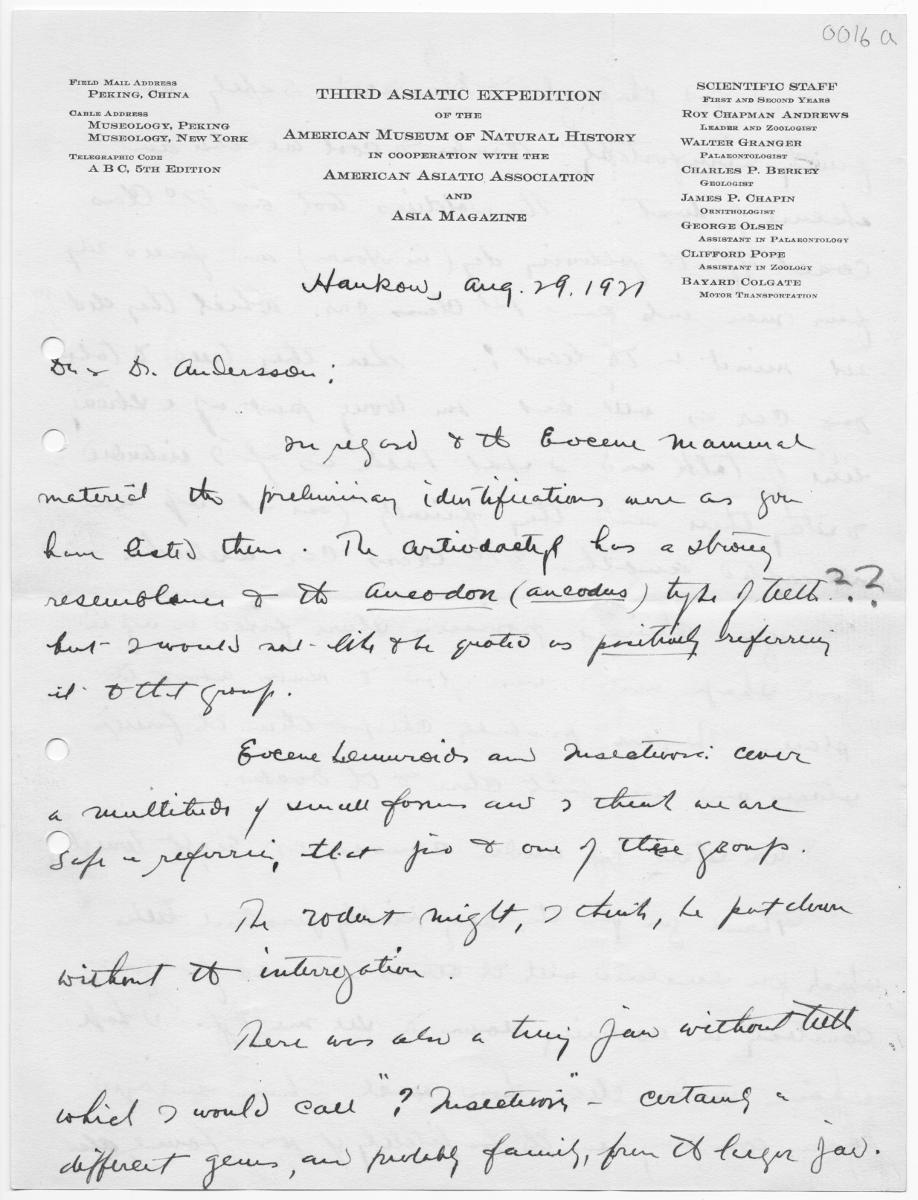 0016 a
FIELD MAIL ADDRESS
PEKING, CHINA
CABLE ADDRESS
MUSEOLOGY, PEKING
MUSEOLOGY, NEW YORK
TELEGRAPHIC CODE
A B C, 5TH EDITION
THIRD ASIATIC EXPEDITION
OF THE
AMERICAN MUSEUM OF NATURAL HISTORY
IN COOPERATION WITH THE
AMERICAN ASIATIC ASSOCIATION
AND
ASIA MAGAZINE
SCIENTIFIC STAFF
FIRST AND SECOND YEARS
ROY CHAPMAN ANDREWS
LEADER AND ZOOLOGIST
WALTER GRANGER
PALAEONTOLOGIST
CHARLES P. BERKEY
GEOLOGIST
JAMES P. CHAPIN
ORNITHOLOGIST
GEORGE OLSEN
ASSISTANT IN PALAEONTOLOGY
CLIFFORD POPE
ASSISTANT IN ZOOLOGY
BAYARD COLGATE
MOTOR TRANSPORTATION
Hankow, Aug. 29, 1921
Dear Dr. Andersson:
In regard to the Eocene mammal
material the preliminary identifications were as you
have listed them. The artiodactyl has a strong
resemblance to the Ancodon (ancodus) type of teeth ??
but I would not like to be quoted as positively referring
it to that group.
Eocene Lemuroids and Insectivora cover
a multitude of small forms and I think we are
safe in referring that jaw to one of these groups.
The rodent might, I think, be put down
without the interrogation.
There was also a tiny jaw without teeth
which I would call "? Insectivora" - certainly a
different genus, and probably family, from the larger jaw.